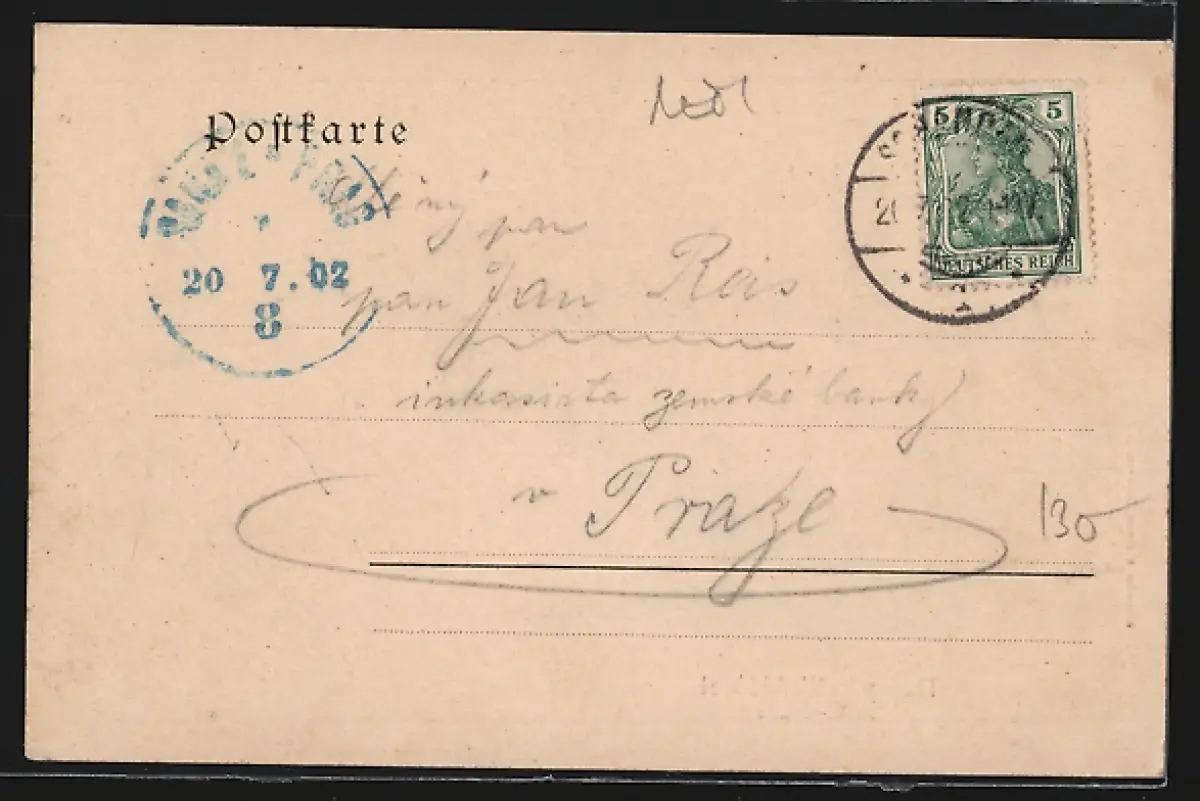 Postkarte
5 5
DEUTSCHES REICH
PRAG
20 7.02
8
pan
pan Jan Reis
inkasista zemské banky
v Praze
130